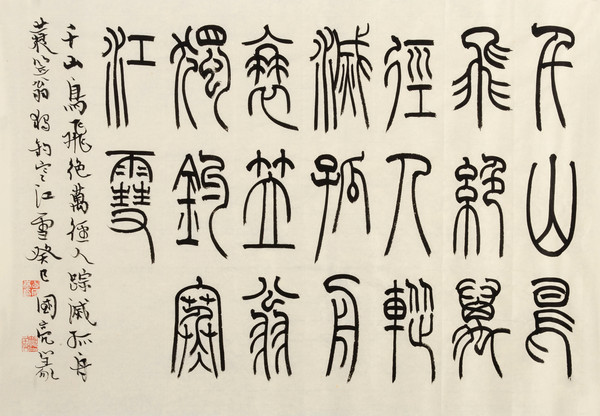 千山鳥
飛絕萬
徑人蹤
滅孤舟
蓑笠翁
獨釣寒
江雪
千山鳥飛絕萬徑人踪滅孤舟
蓑笠翁獨釣寒江雪癸巳國亮篆